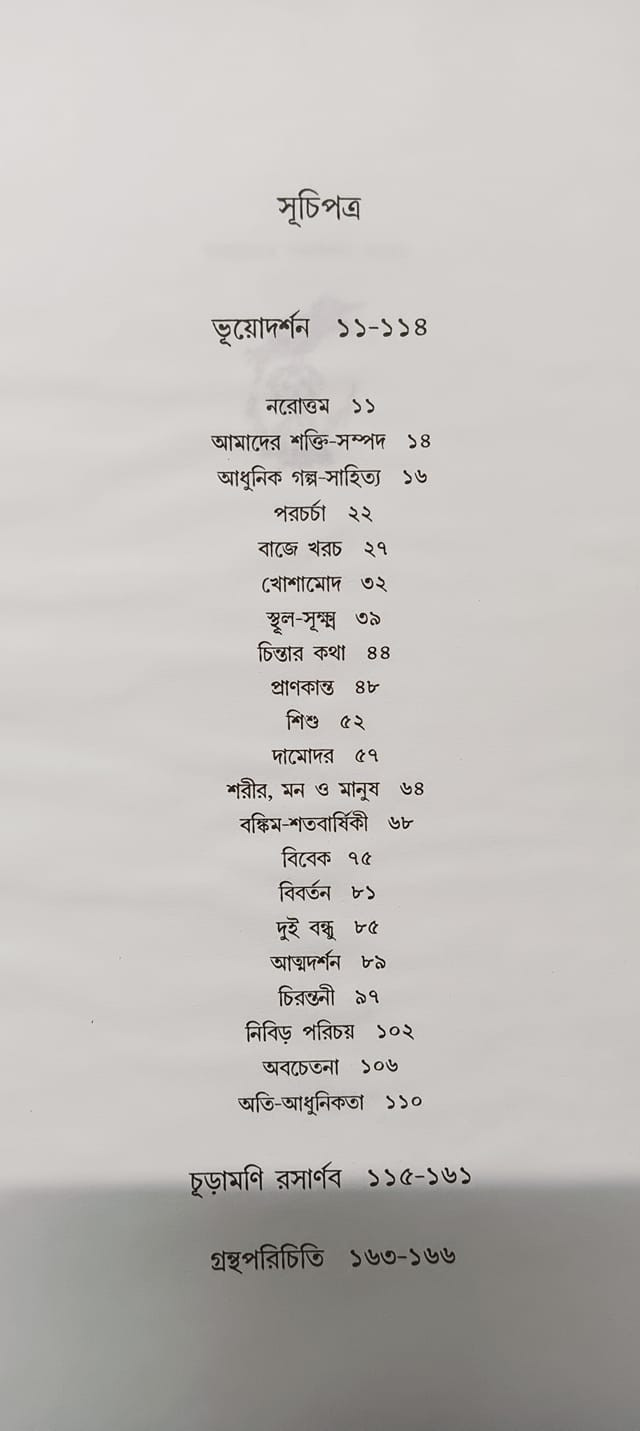 সূচিপত্র
ভূয়োদর্শন ১১-১১৪
নরোত্তম ১১
আমাদের শক্তি-সম্পদ ১৪
আধুনিক গল্প-সাহিত্য ১৬
পরচর্চা ২২
বাজে খরচ ২৭
খোশামোদ ৩২
স্থূল-সূক্ষ্ম ৩৯
চিন্তার কথা ৪৪
প্রাণকান্ত ৪৮
শিশু ৫২
দামোদর ৫৭
শরীর, মন ও মানুষ ৬৪
বঙ্কিম-শতবার্ষিকী ৬৮
বিবেক ৭৫
বিবর্তন ৮১
দুই বন্ধু ৮৫
আত্মদর্শন ৮৯
চিরন্তনী ৯৭
নিবিড় পরিচয় ১০২
অবচেতনা ১০৬
অতি-আধুনিকতা ১১০
চূড়ামণি রসার্ণব ১১৫-১৬১
গ্রন্থপরিচিতি ১৬৩-১৬৬